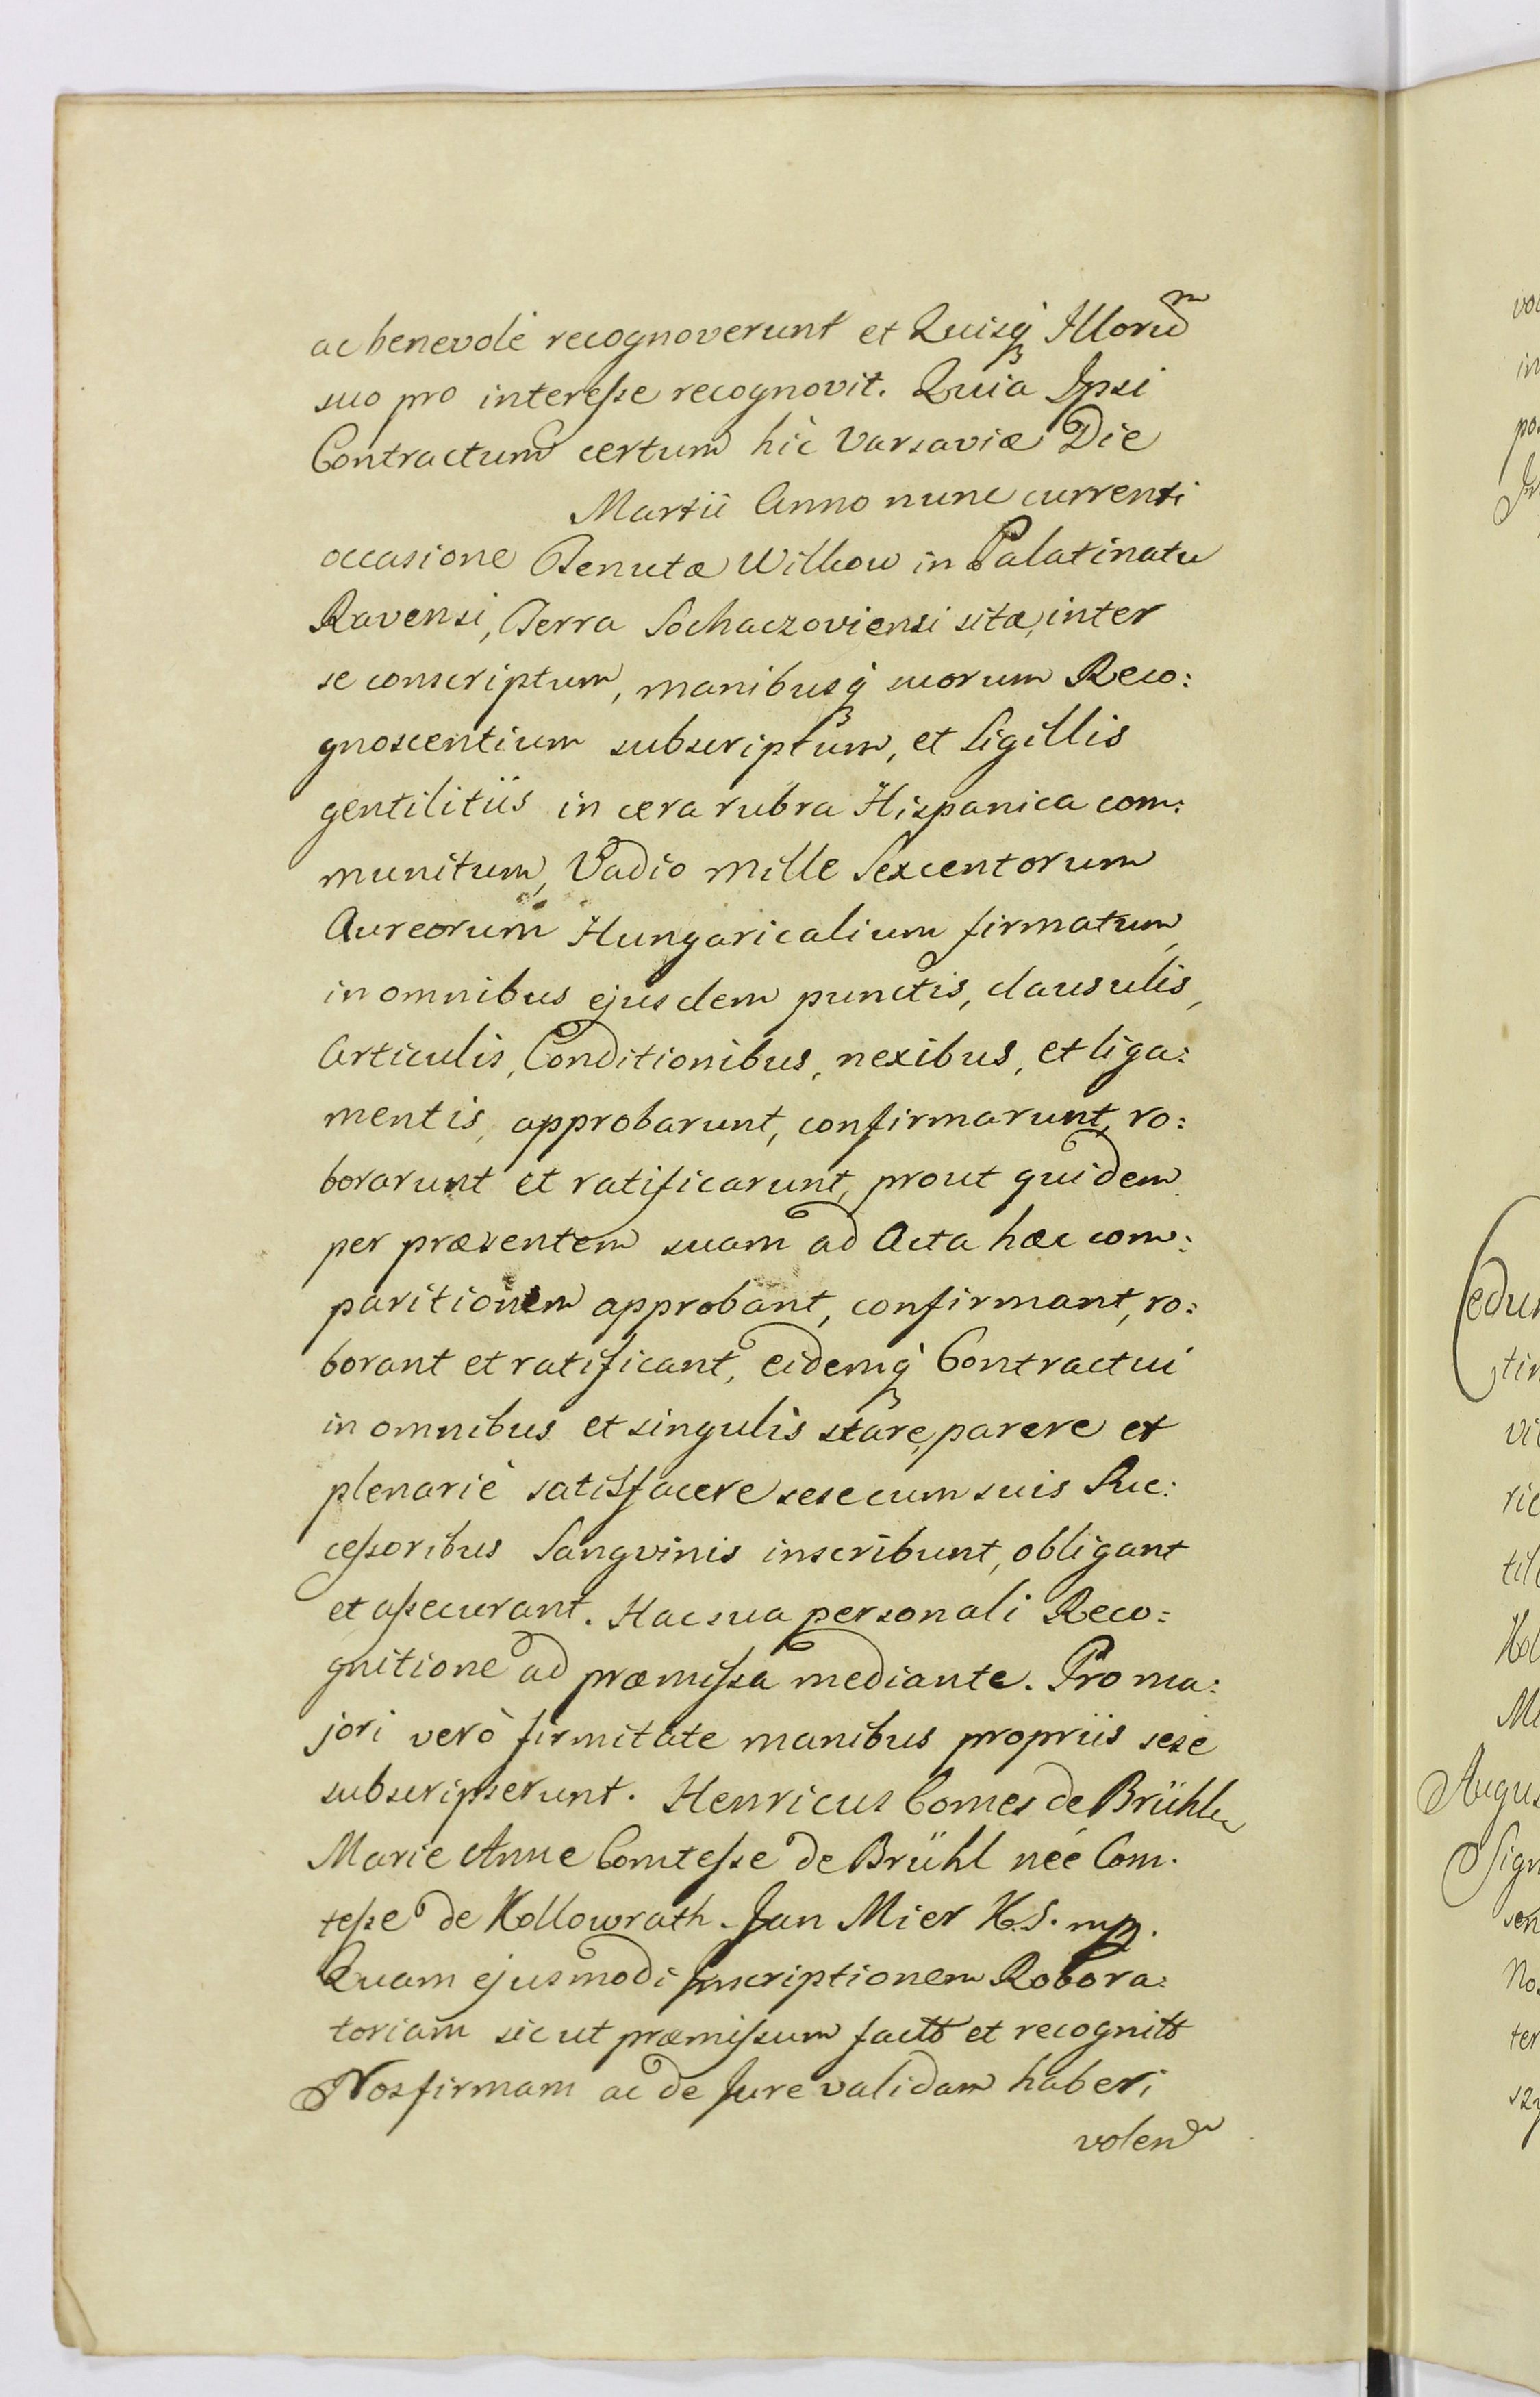 ac benevolè recognoverunt et Quisq́ꝫ Illorūm
suo pro intereſse recognovit. Quia Ipsi
Contractum certum hic Varsaviæ Die
Martii Anno nunc currenti
occasione Tenutæ Wilkow in Palatinatu
Ravensi, Terra Sochaczoviensi sitæ, inter
se conscriptum, manibusq́ꝫ suorum Reco:
gnoscentium subscriptum, et Sigillis
gentilitiis in cera rubra Hispanica com:
munitum, Vadio Mille Sexcentorum
Aureorum Hungaricalium firmatum,
in omnibus ejusdem punctis, clausulis,
Articulis, Conditionibus, nexibus, et liga:
mentis, approbarunt, confirmarunt, ro:
borarunt et ratificarunt, prout quidem
per præsentem suam ad Acta hæc com:
paritionem approbant, confirmant, ro:
borant et ratificant, eidemq́ꝫ Contractui
in omnibus et singulis stare, parere et
plenariè satisfacere sese cum suis Suc:
ceſsoribus Sangvinis inscribunt, obligant
et aſsecurant. Hac sua personali Reco:
gnitione ad præmiſsa mediante. Pro ma:
jori verò firmitate manibus propriis sese
subscripserunt. Henricus Comes de Brühl
Marie Anne Comteſse de Brühl née Com.
teſse de Kollowrath. Jan Mier K.S. mp.
Quam ejusmodi Inscriptionem Robora:
toriam sic ut præmiſsum factô et recognitô
Nos firmam ac de Jure validam haberi
volen